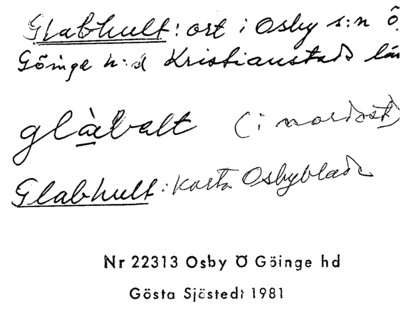 Glabhult: ort i Osby s:n Ö.
Göinge h:d Kristianstads län
glàbalt (i nordost)
Glabhult: Karta Osbyblad
Nr 22313 Osby Ö Göinge hd
Gösta Sjöstedt 1981